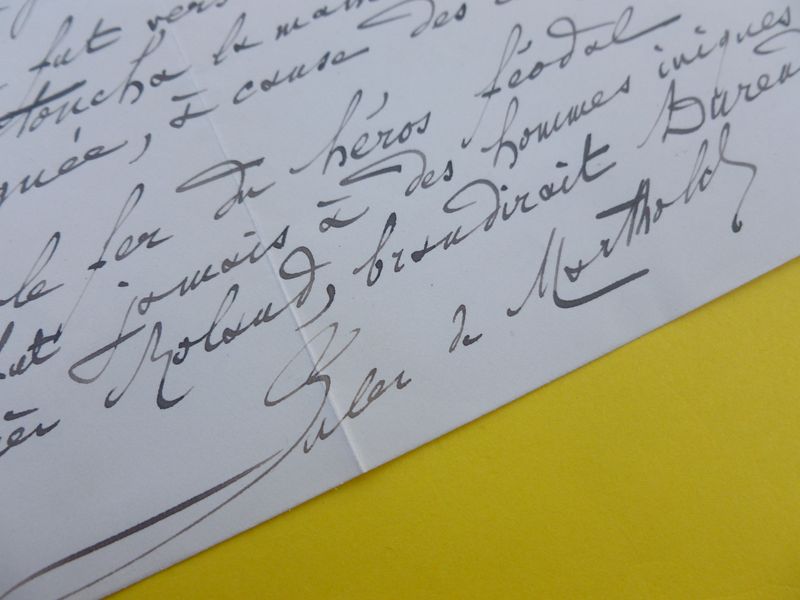 fut vers
toucha la main
à cause des
le fer du héros féodal
fut jamais à des hommes iniques
Roland, brandirait Durend
Jules de Marthold